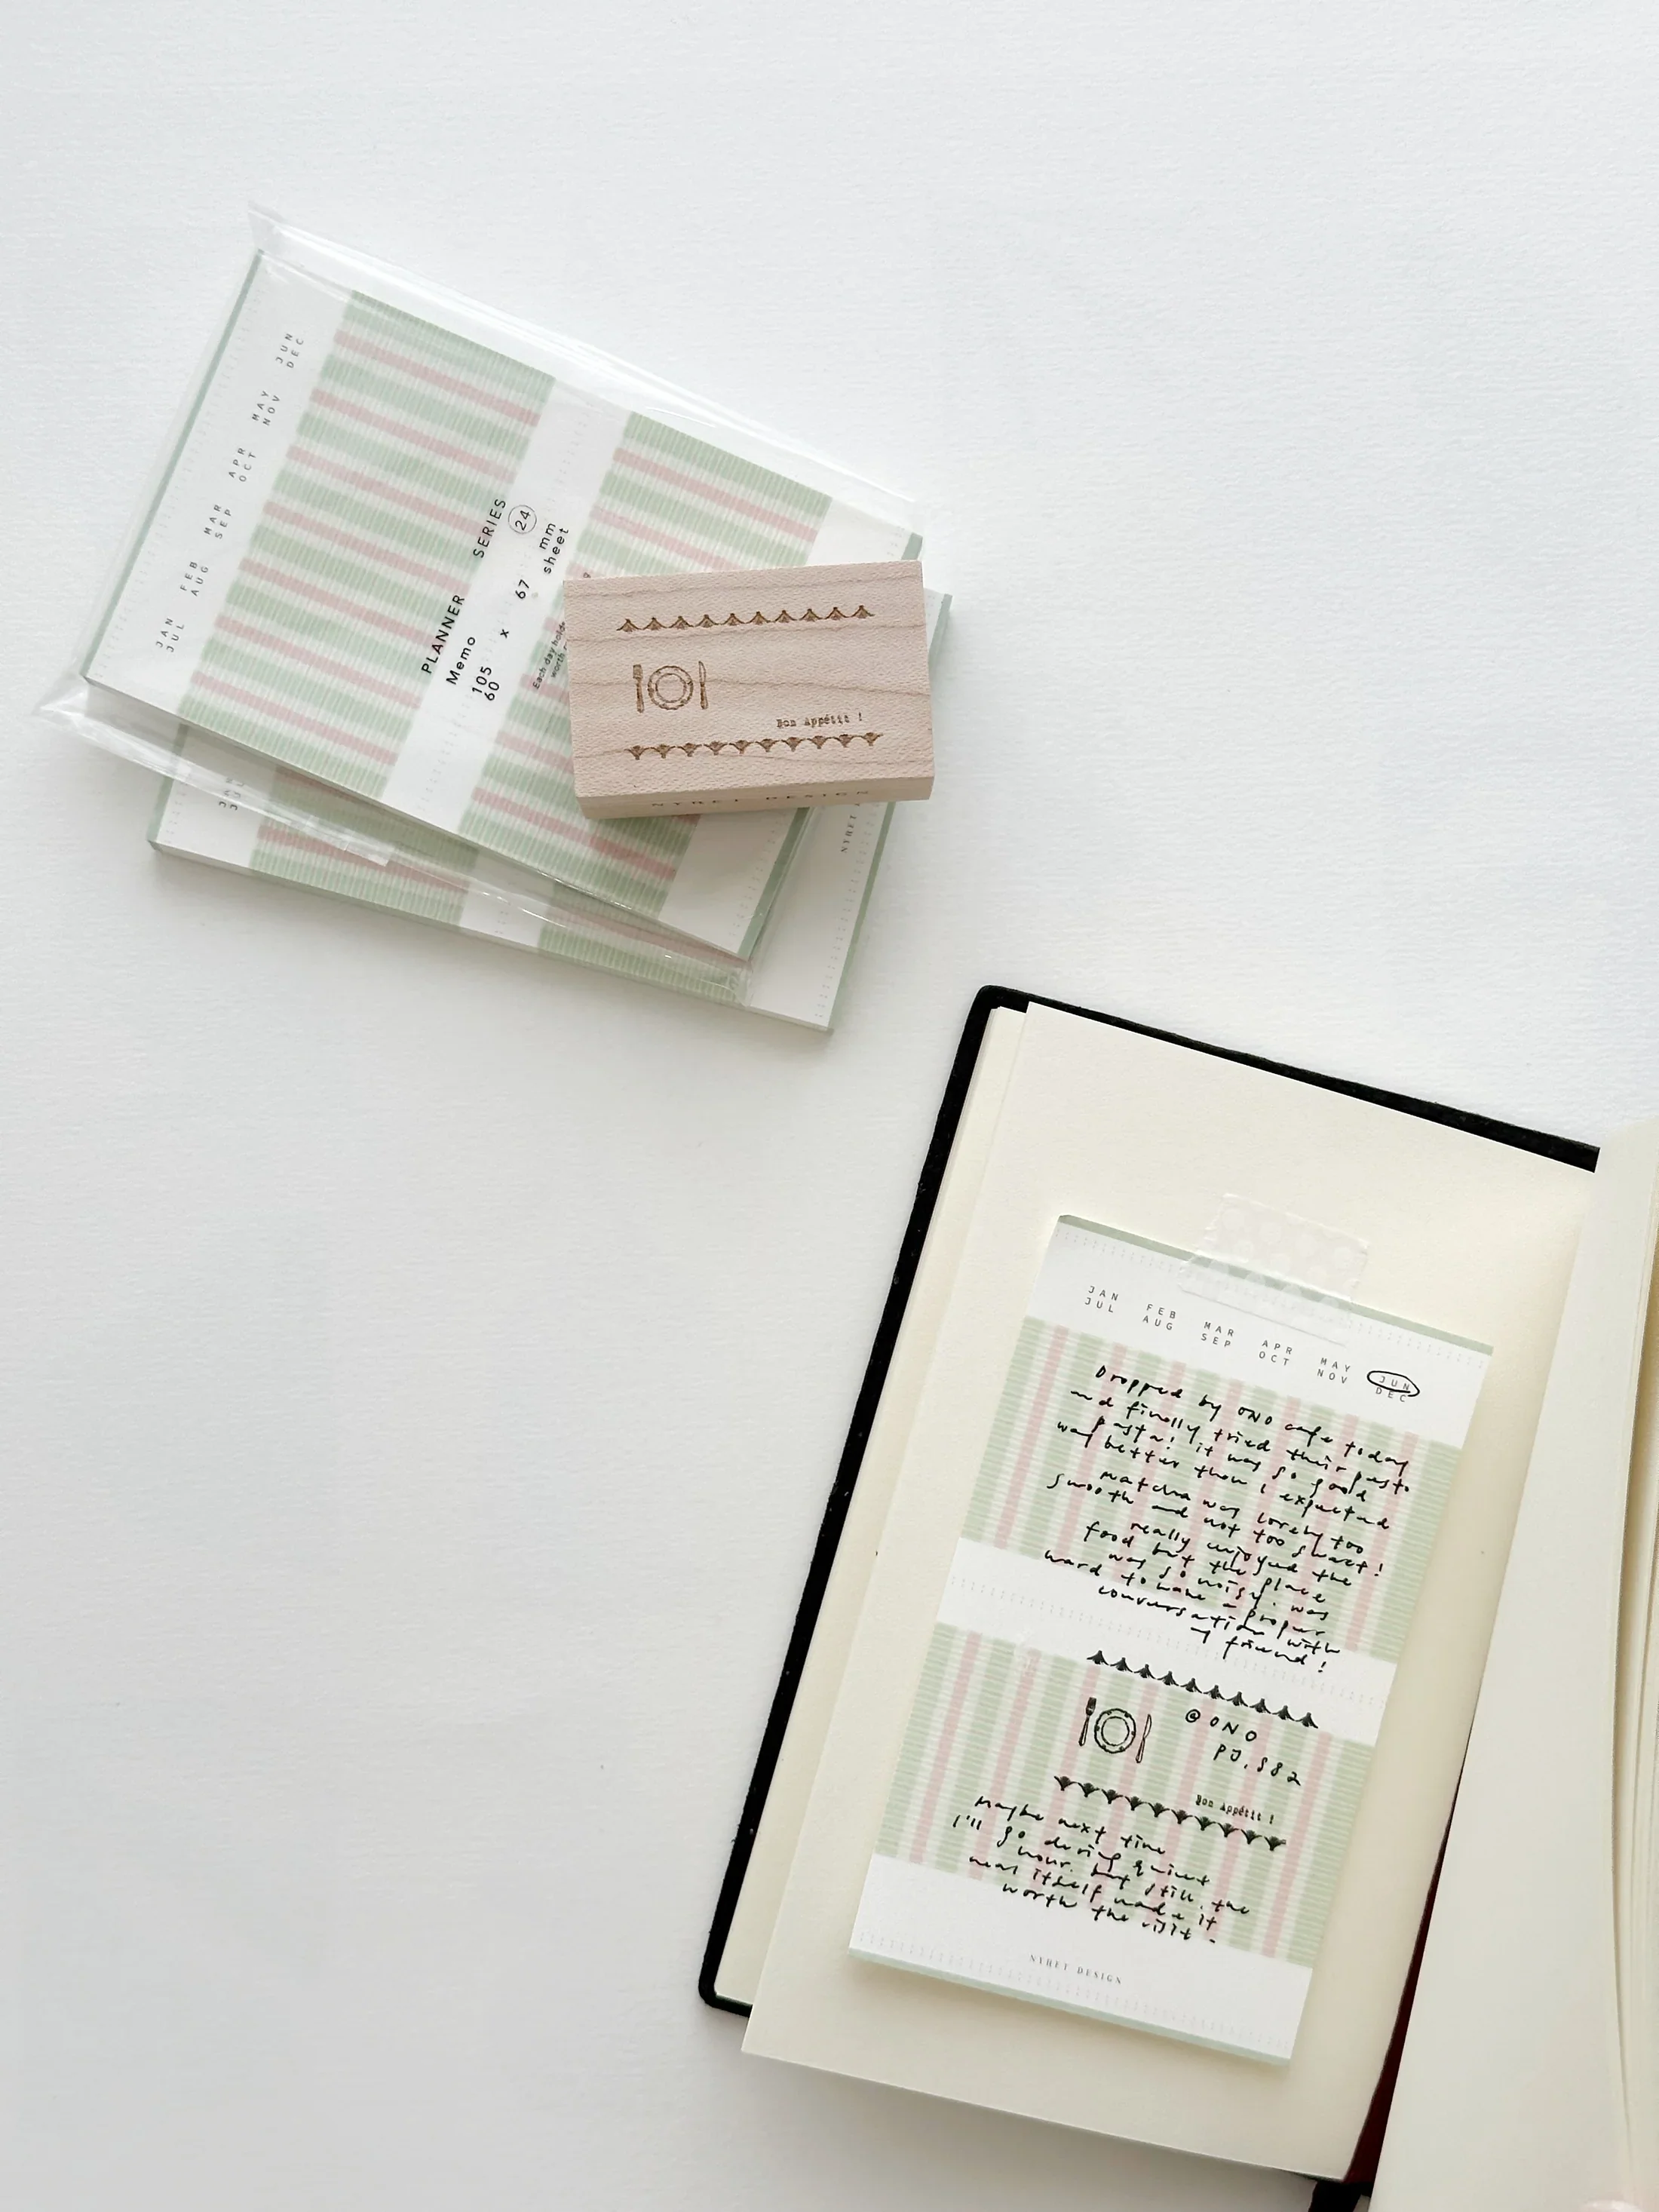 JAN FEB MAR APR MAY JUN
JUL AUG SEP OCT NOV DEC
PLANNER SERIES
Memo 24
105 x 67 mm
60 sheet
Each day holds
worth
Bon Appétit !
NYRET DESIGN
NYRET
JAN FEB MAR APR MAY JUN
JUL AUG SEP OCT NOV DEC
Dropped by ONO cafe today
and finally tried their pasta
pasta! it was so good
way better than i expected
matcha was lovely too
smooth and not too sweet!
really enjoyed the
food but the place
was so noisy. was
hard to have a proper
conversation with
my friend!
@ONO
PJ, S82
Bon Appétit !
Maybe next time
I'll go during quiet
hour. but still, the
meal itself made it
worth the visit.
NYRET DESIGN